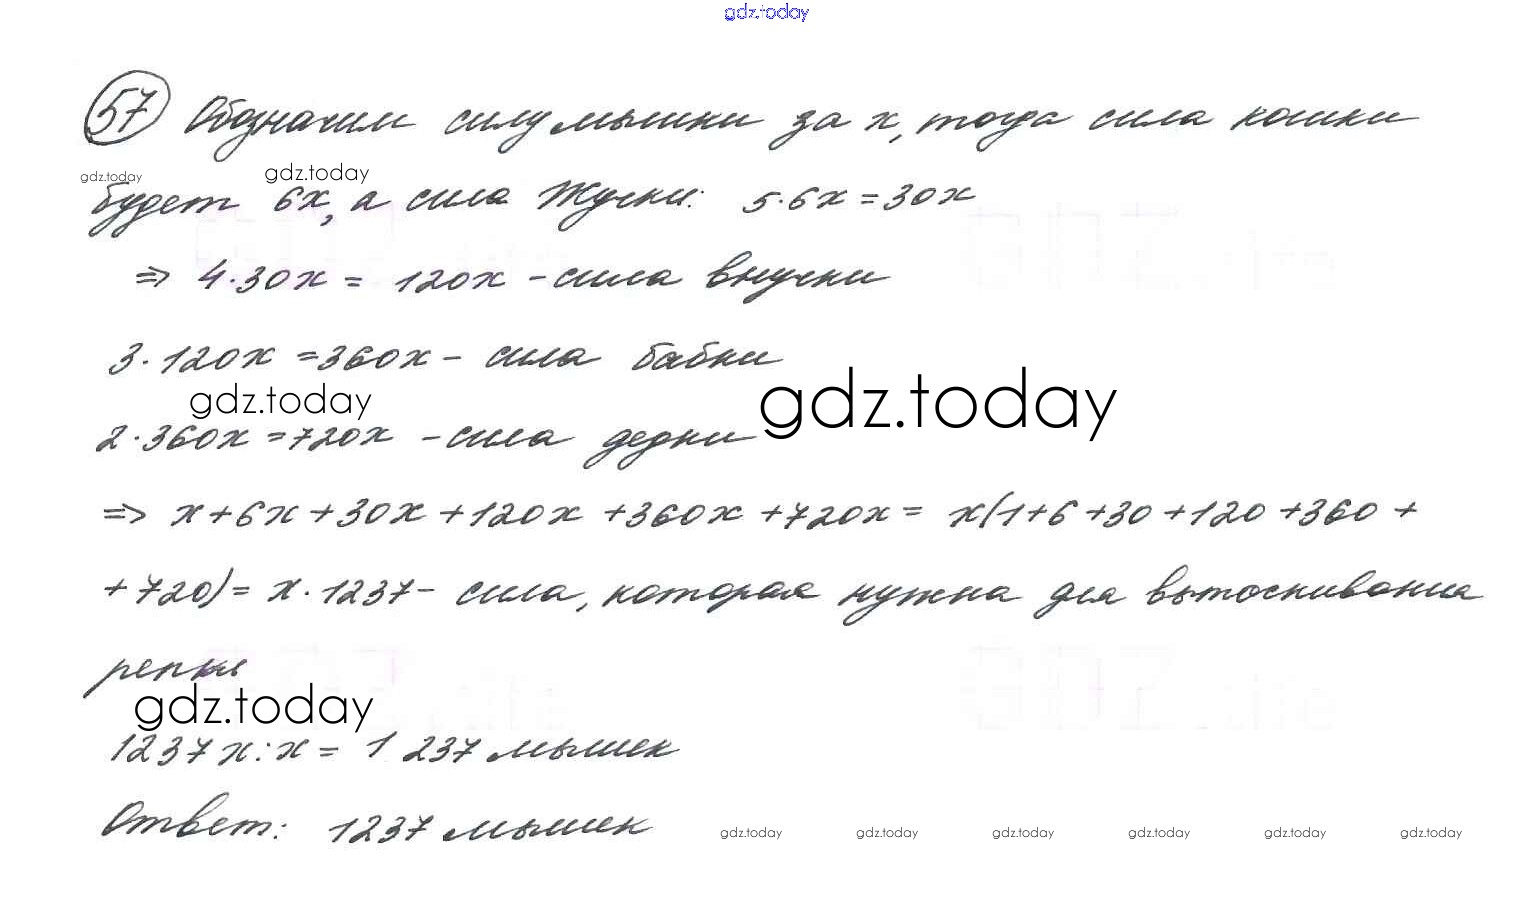 gdz.today
57 Обозначим силу мышки за x, тогда сила кошки
gdz.today gdz.today
будет 6x, а сила Жучки: 5·6x=30x
⇒ 4·30x = 120x - сила внучки
3·120x =360x - сила бабки
gdz.today gdz.today
2·360x =720x - сила дедки
⇒ x+6x+30x+120x+360x+720x= x(1+6+30+120+360+
+720)= x·1237- сила, которая нужна для вытоскивания
репки
gdz.today
1237x:x= 1 237 мышек
Ответ: 1237 мышек
gdz.today gdz.today gdz.today gdz.today gdz.today gdz.today